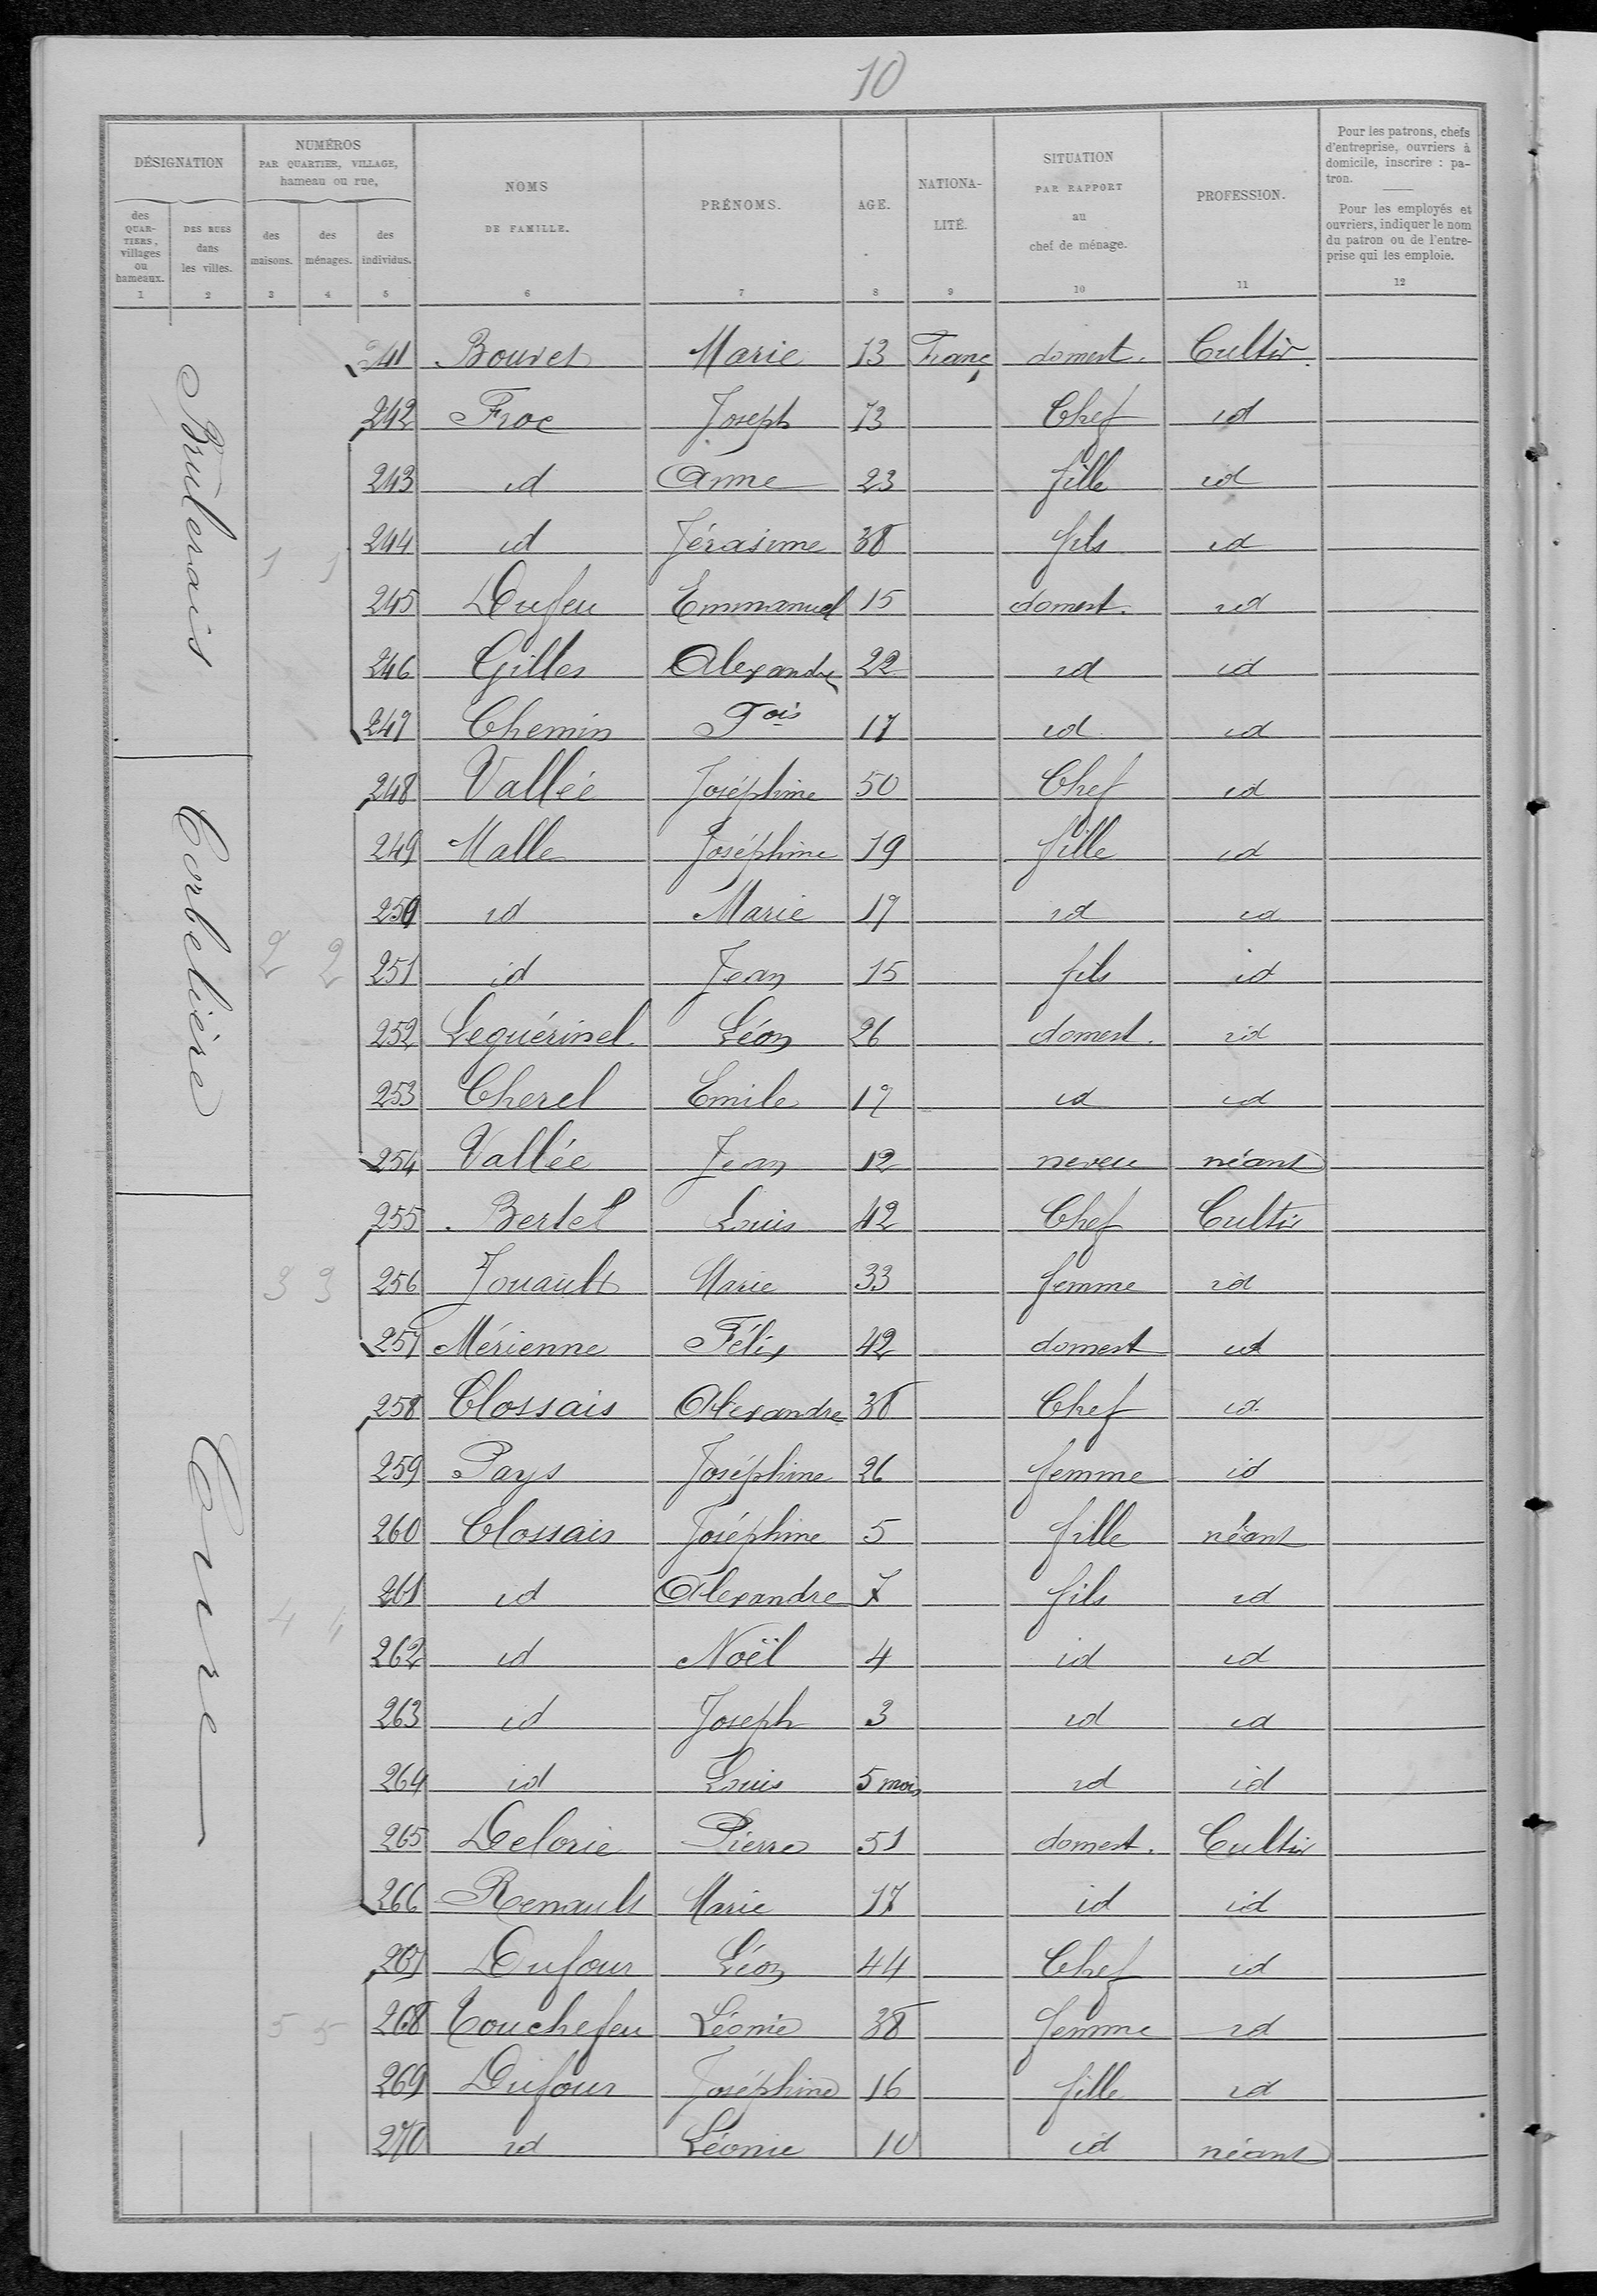 10
DÉSIGNATION
des QUARTIERS, villages ou hameaux.
DES RUES dans les villes.
NUMÉROS PAR QUARTIER, VILLAGE, hameau ou rue,
des maisons.
des ménages.
des individus.
NOMS DE FAMILLE.
PRÉNOMS.
AGE.
NATIONA-LITÉ.
SITUATION PAR RAPPORT au chef de ménage.
PROFESSION.
Pour les patrons, chefs d'entreprise, ouvriers à domicile, inscrire : patron.
Pour les employés et ouvriers, indiquer le nom du patron ou de l'entreprise qui les emploie.
1 2 3 4 5 6 7 8 9 10 11 12
Brulerais
241 Bouvet Marie 13 Franç domest. Cultiv.
242 Froc Joseph 73 Chef id
243 id Anne 23 fille id
1 1
244 id Jérasime 38 fils id
245 Dufeu Emmanuel 15 domest. id
246 Gilles Alexandre 22 id id
247 Chemin Fois 17 id id
Corbelière
248 Vallée Joséphine 50 Chef id
249 Malle Joséphine 19 fille id
250 id Marie 17 id id
2 2
251 id Jean 15 fils id
252 Leguérinel Léon 26 domest. id
253 Cherel Emile 17 id id
254 Vallée Jean 12 neveu néant
255 Bertel Louis 42 Chef Cultiv
3 3
256 Jouault Marie 33 femme id
257 Mérienne Félix 42 domest id
258 Clossais Alexandre 38 Chef id
259 Pays Joséphine 26 femme id
260 Clossais Joséphine 5 fille néant
4 4
261 id Alexandre 7 fils id
262 id Noël 4 id id
263 id Joseph 3 id id
264 id Louis 5 mois id id
265 Delorie Pierre 51 domest. Cultiv
266 Renault Marie 17 id id
267 Dufour Léon 44 Chef id
5 5
268 Touchefeu Léonie 38 femme id
269 Dufour Joséphine 16 fille id
270 id Léonie 10 id néant